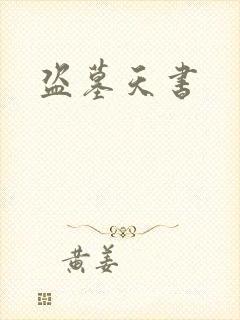 盗墓天书
黄姜